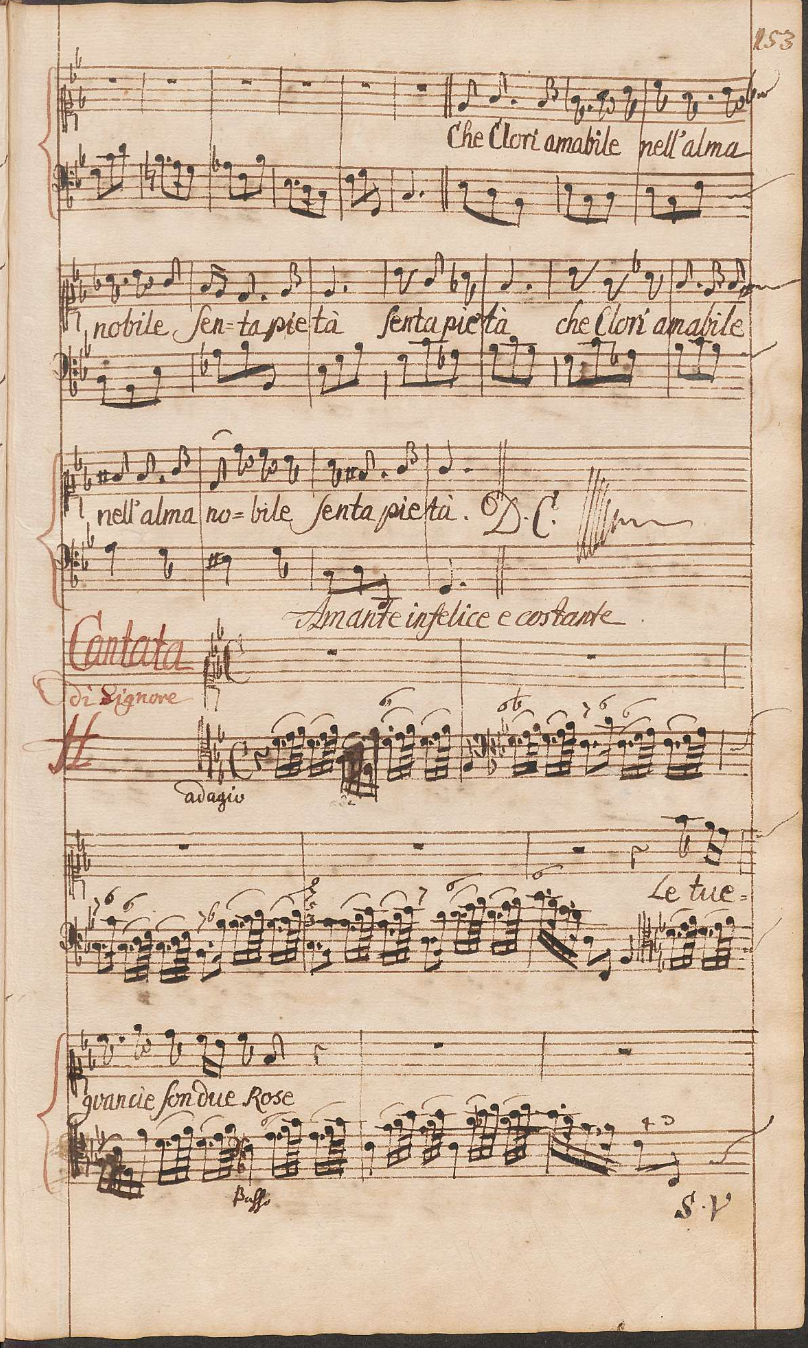 153
Che Clori amabile nell'alma
nobile sen=ta pietà senta pietà che Clori amabile
nell'alma no=bile senta pietà. D. C.
Amante infelice e costante.
Cantata
di Signore
H
6 6b 7 6 6
adagio
Le tue=
7 6 6 7 6 7 6 6
guancie son due Rose
4 3
Basso
S. V